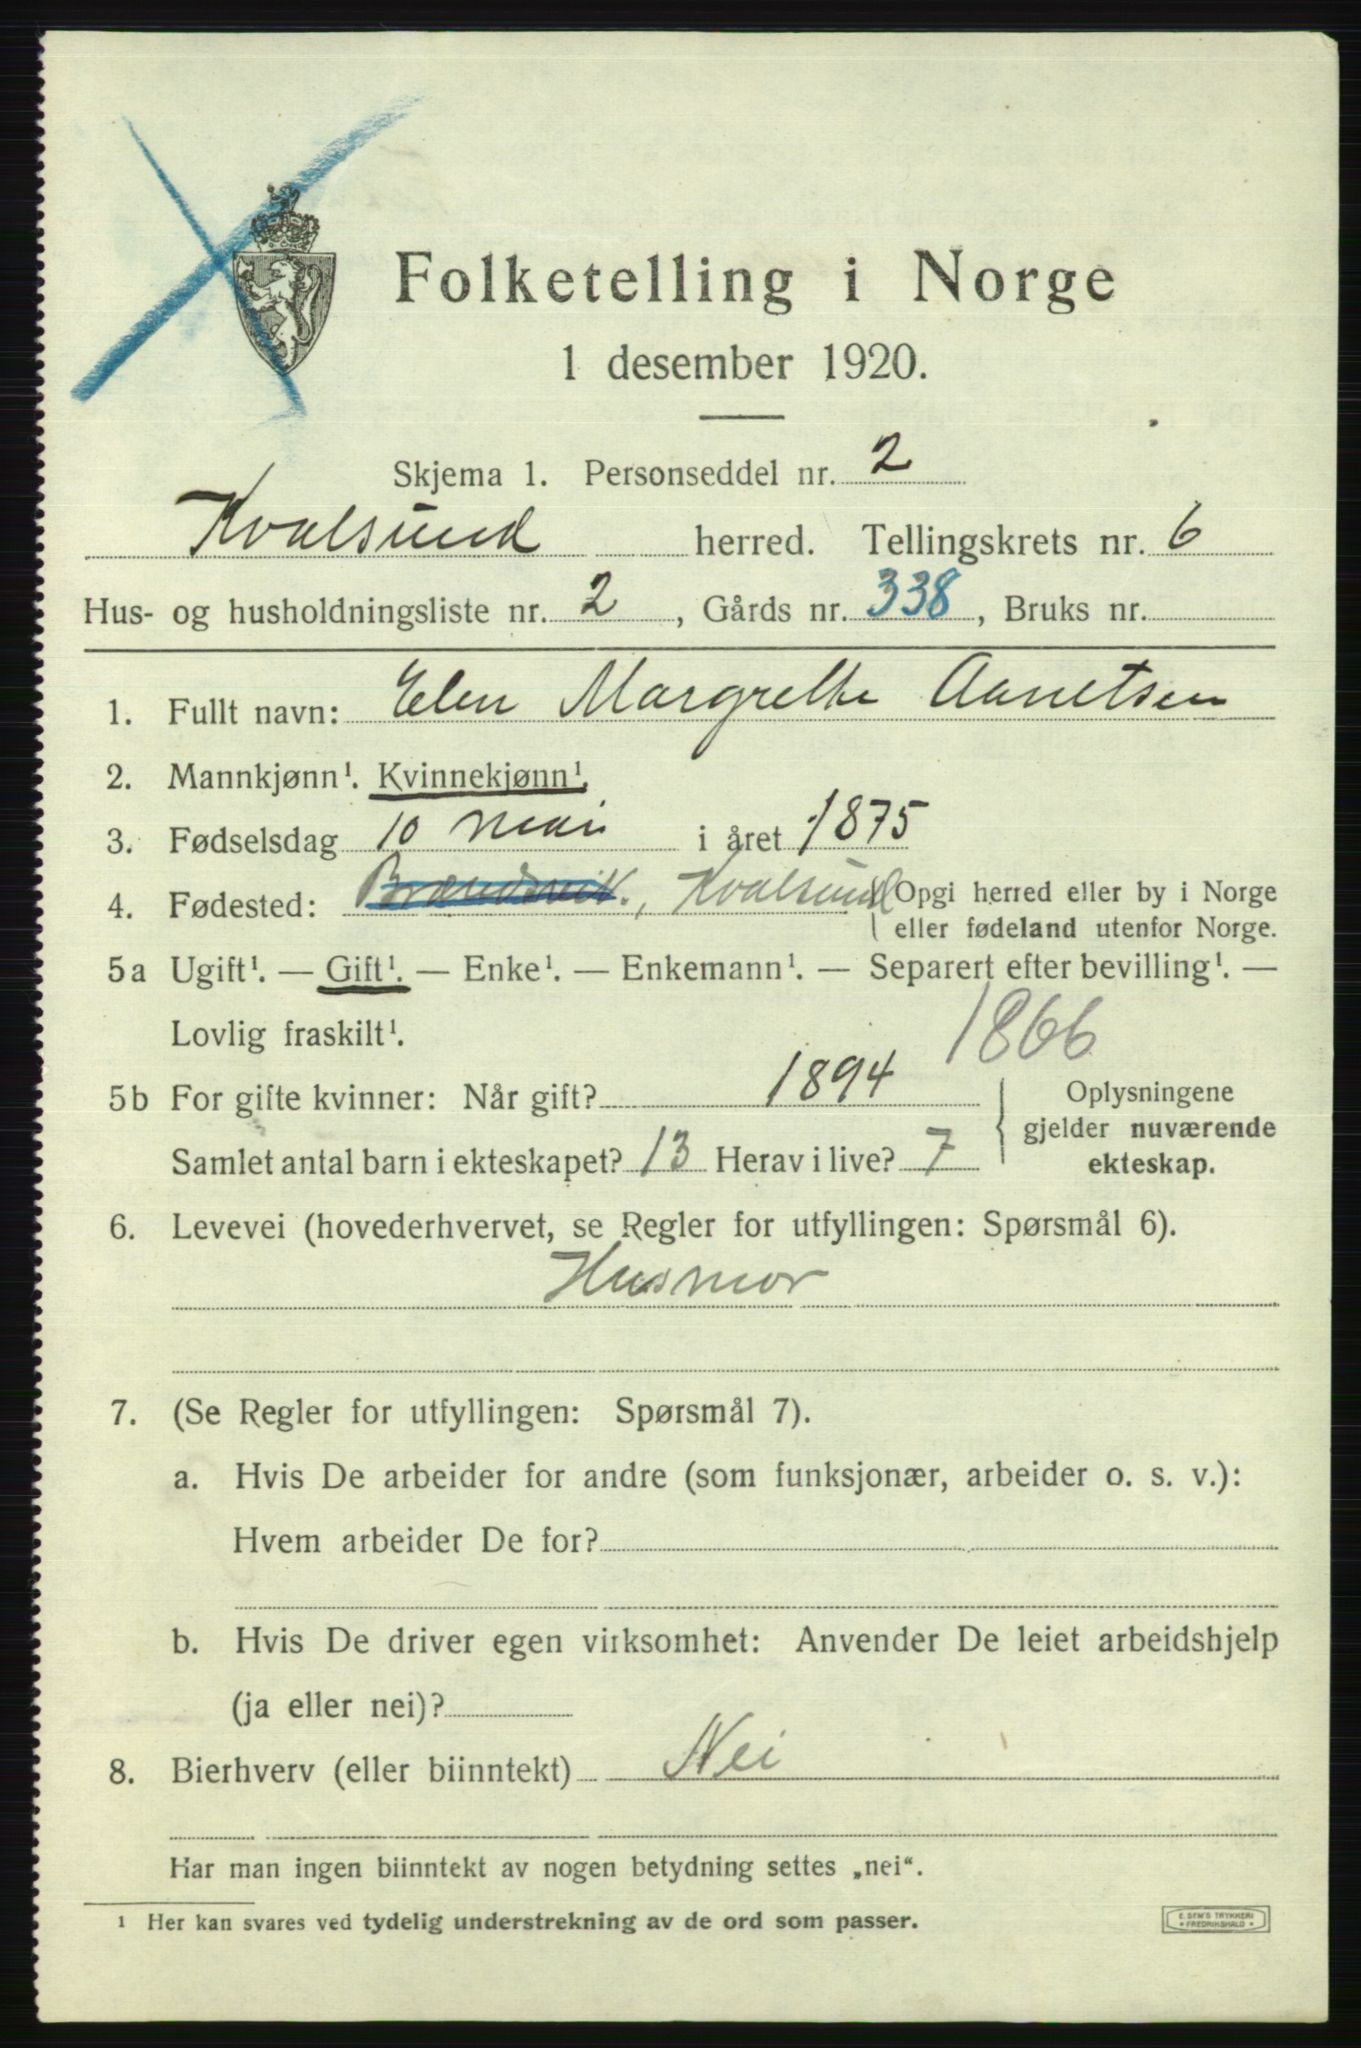 Folketelling i Norge
1 desember 1920.
Skjema 1. Personseddel nr. 2
Kvalsund herred. Tellingskrets nr. 6
Hus- og husholdningsliste nr. 2, Gårds nr. 338, Bruks nr.
1. Fullt navn: Elen Margrethe
2. Mannkjønn¹. Kvinnekjønn¹.
3. Fødselsdag 10 mai i året 1875
4. Fødested: Brændsvik., Kvalsund Opgi herred eller by i Norge
eller fødeland utenfor Norge.
5a Ugift¹. — Gift¹. — Enke¹. — Enkemann¹. — Separert efter bevilling¹. —
Lovlig fraskilt¹.
1866
5b For gifte kvinner: Når gift? 1894 Oplysningene
gjelder nuværende
Samlet antal barn i ekteskapet? 13 Herav i live? 7 ekteskap.
6. Levevei (hovederhvervet, se Regler for utfyllingen: Spørsmål 6).
Husmor
7. (Se Regler for utfyllingen: Spørsmål 7).
a. Hvis De arbeider for andre (som funksjonær, arbeider o. s. v.):
Hvem arbeider De for?
b. Hvis De driver egen virksomhet: Anvender De leiet arbeidshjelp
(ja eller nei)?
8. Bierhverv (eller biinntekt) Nei
Har man ingen biinntekt av nogen betydning settes „nei“.
¹ Her kan svares ved tydelig understrekning av de ord som passer.
E. SEM'S TRYKKERI
FREDRIKSHALD